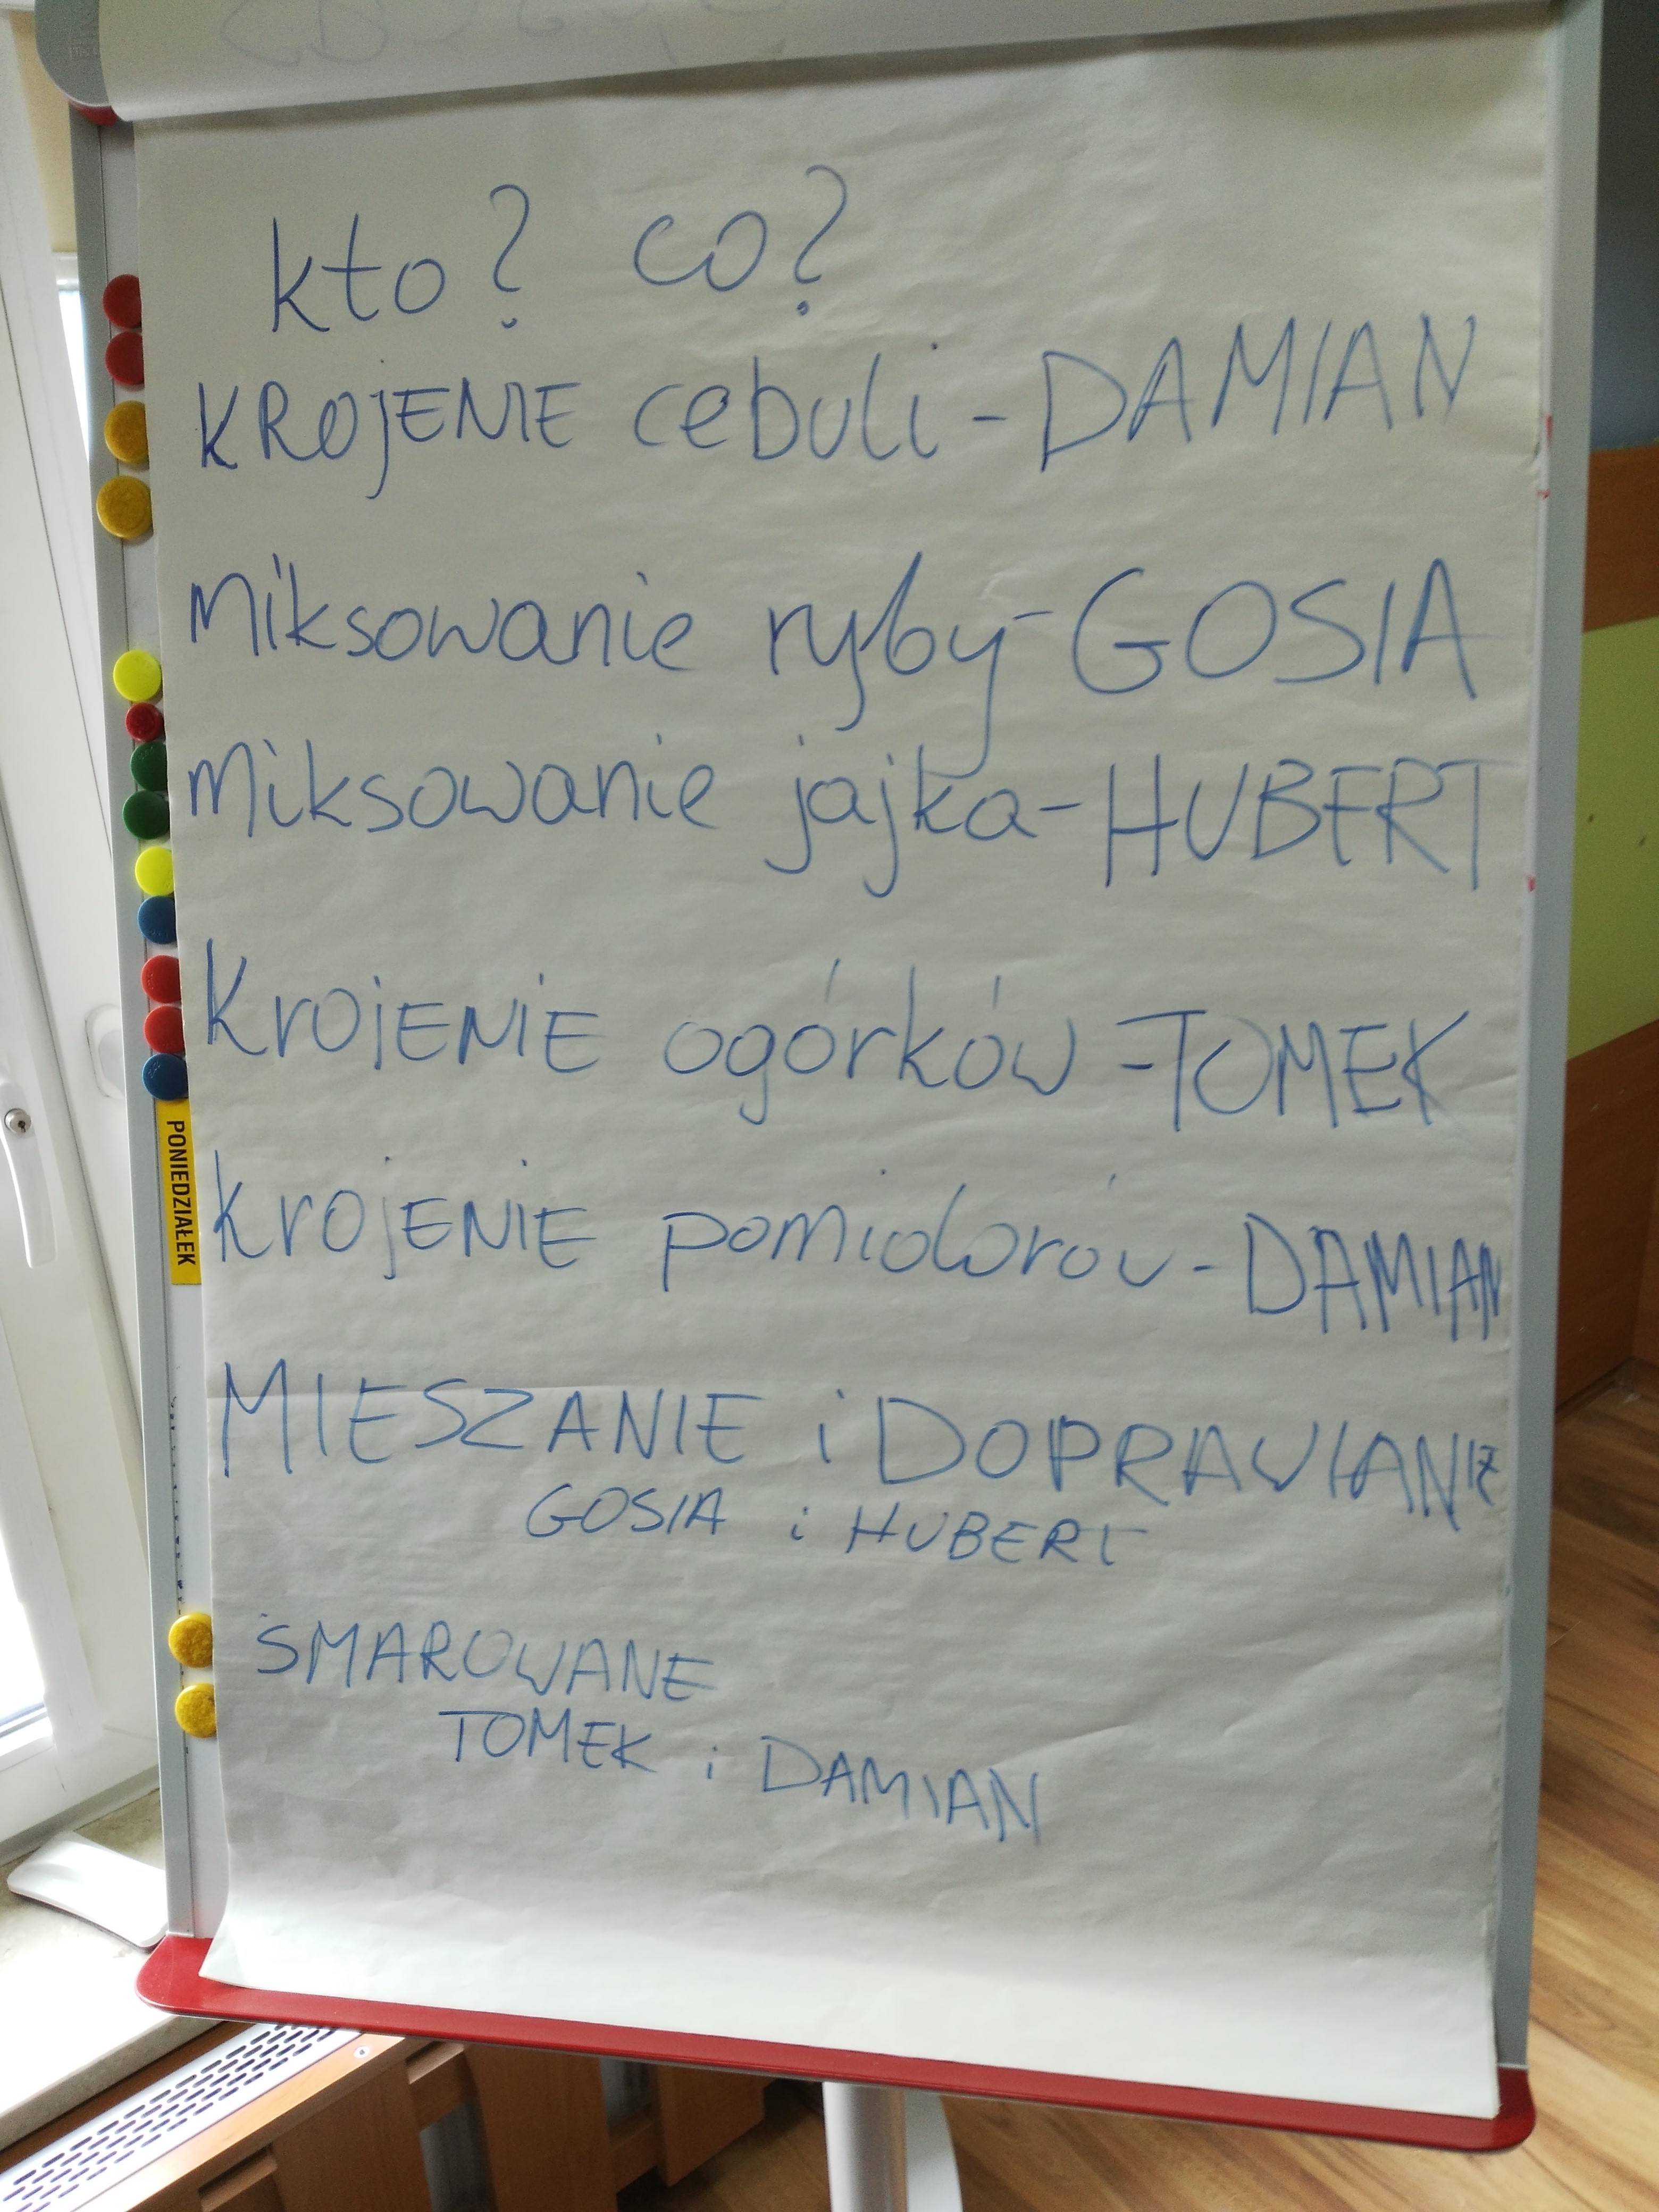 kto? co?
KROJENIE cebuli - DAMIAN
miksowanie ryby - GOSIA
miksowanie jajka - HUBERT
KrojENiE ogórków - TOMEK
PONIEDZIAŁEK
krojENiE pomidorów - DAMIAN
MIESZANIE i DOPRAWIANIE
GOSIA i HUBERT
SMAROWANE
TOMEK i DAMIAN